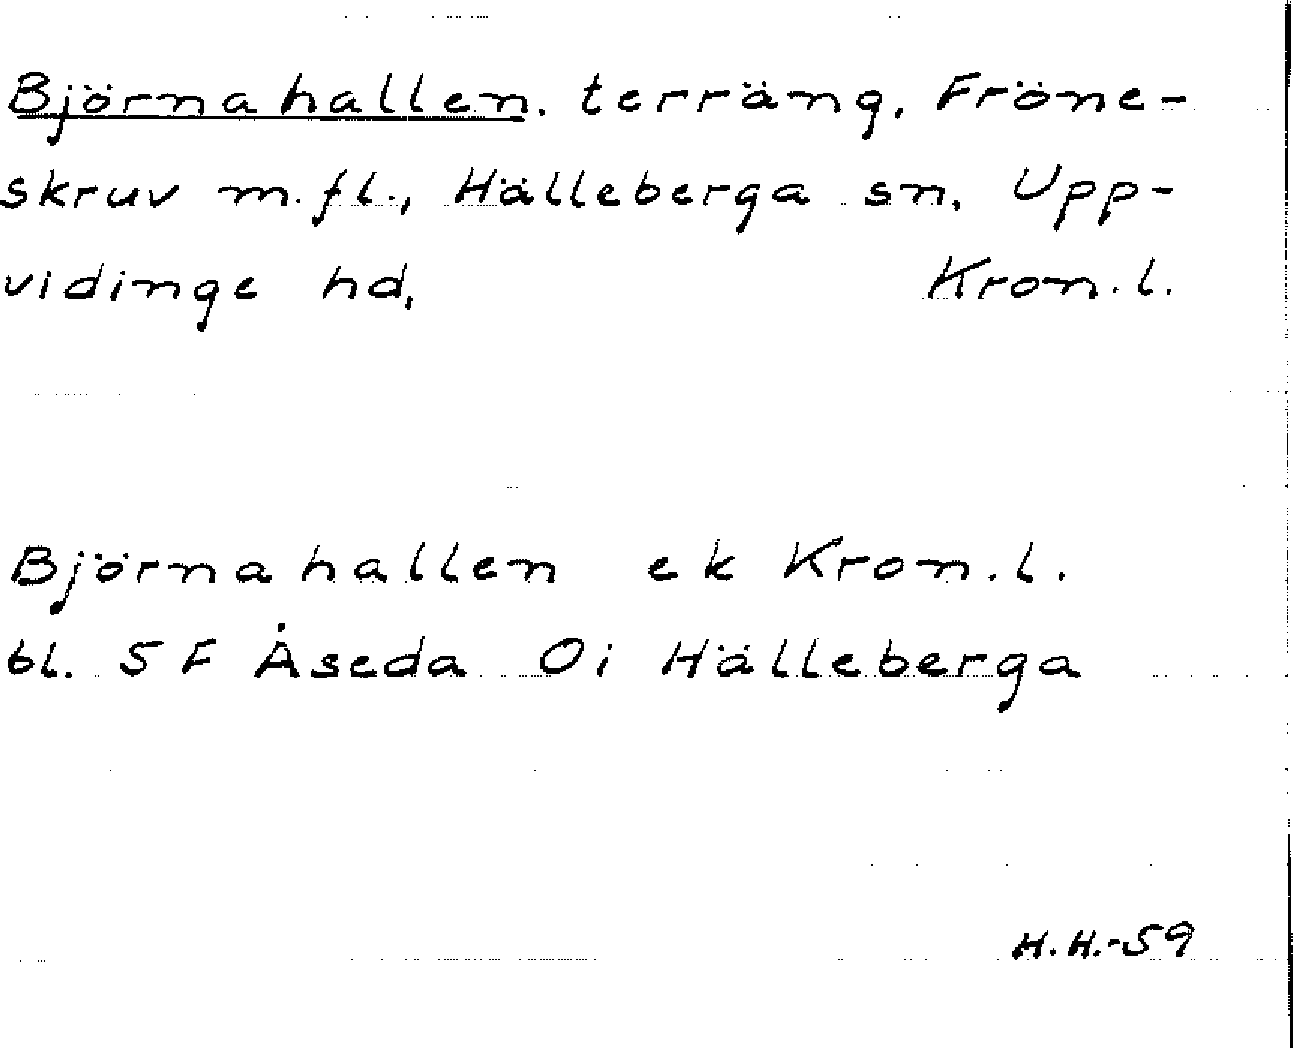 Björnahallen, terräng, Fröne-
skruv m.fl., Hälleberga sn, Upp-
vidinge hd, Kron.l.
Björnahallen ek Kron.l.
bl. 5F Åseda 0i Hälleberga
H.H.-59